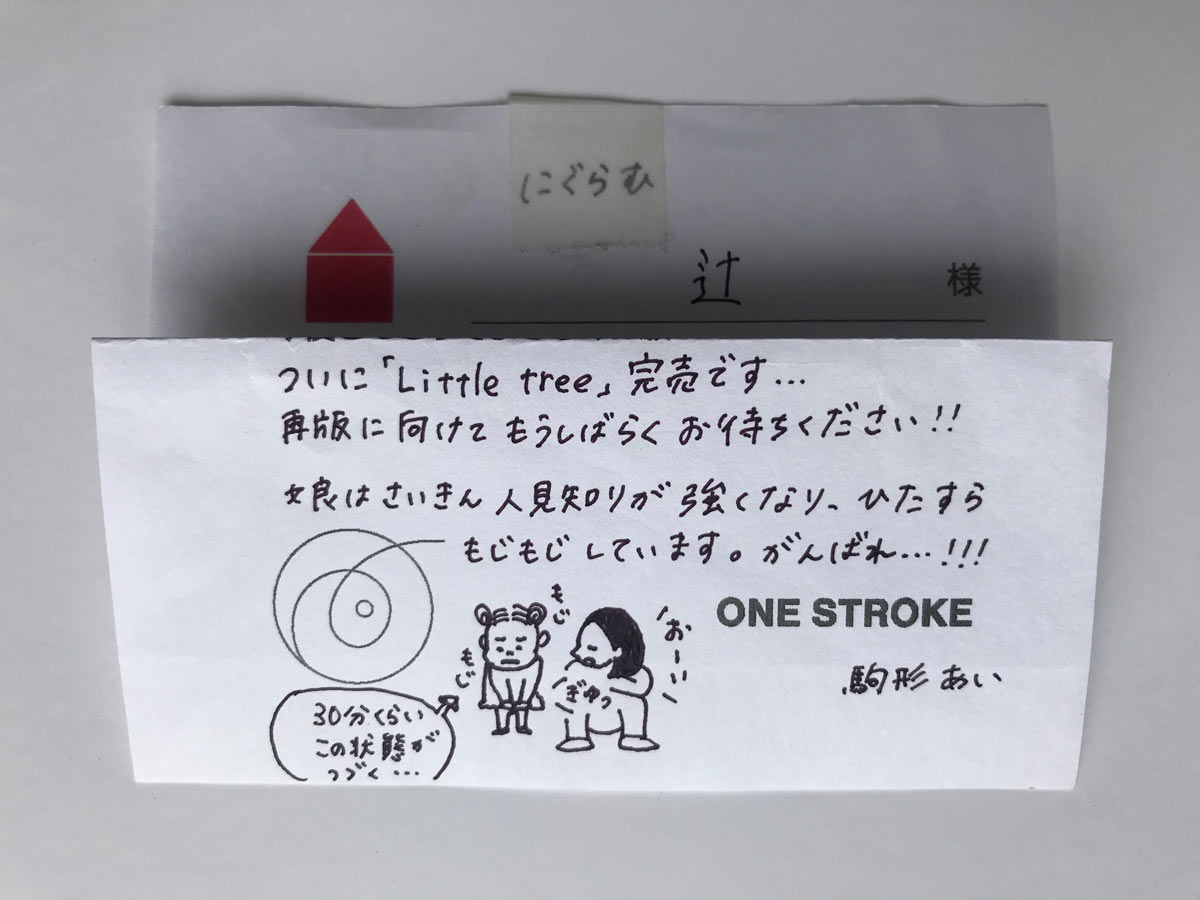 にぐらむ
辻 様
ついに「Little tree」完売です…
再版に向けてもうしばらくお待ちください!!
娘はさいきん人見知りが強くなり、ひたすら
もじもじしています。がんばれ…!!!
ONE STROKE
駒形あい
もじ
もじ
おーい
ぎゅっ
30分くらい
この状態が
つづく…